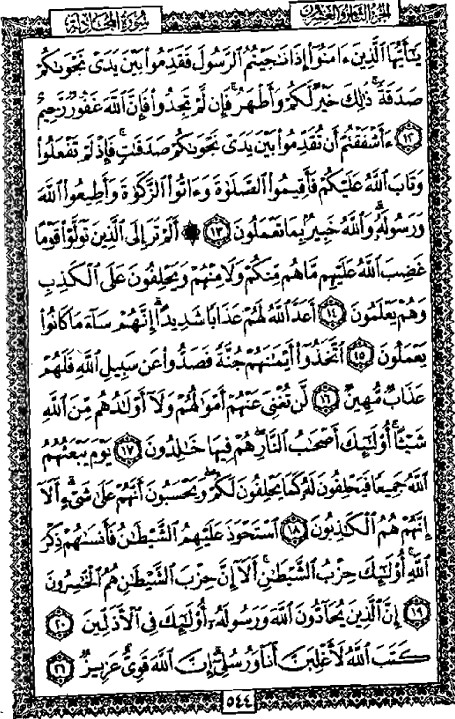 الجزء الثامن والعشرون
سورة المجادلة
يَٰٓأَيُّهَا ٱلَّذِينَ ءَامَنُوٓاْ إِذَا نَٰجَيۡتُمُ ٱلرَّسُولَ فَقَدِّمُواْ بَيۡنَ يَدَيۡ نَجۡوَىٰكُمۡ
صَدَقَةٗۚ ذَٰلِكَ خَيۡرٞ لَّكُمۡ وَأَطۡهَرُۚ فَإِن لَّمۡ تَجِدُواْ فَإِنَّ ٱللَّهَ غَفُورٞ رَّحِيمٌ
١٢ ءَأَشۡفَقۡتُمۡ أَن تُقَدِّمُواْ بَيۡنَ يَدَيۡ نَجۡوَىٰكُمۡ صَدَقَٰتٖۚ فَإِذۡ لَمۡ تَفۡعَلُواْ
وَتَابَ ٱللَّهُ عَلَيۡكُمۡ فَأَقِيمُواْ ٱلصَّلَوٰةَ وَءَاتُواْ ٱلزَّكَوٰةَ وَأَطِيعُواْ ٱللَّهَ
وَرَسُولَهُۥۚ وَٱللَّهُ خَبِيرُۢ بِمَا تَعۡمَلُونَ ١٣ ۞ أَلَمۡ تَرَ إِلَى ٱلَّذِينَ تَوَلَّوۡاْ قَوۡمًا
غَضِبَ ٱللَّهُ عَلَيۡهِم مَّا هُم مِّنكُمۡ وَلَا مِنۡهُمۡ وَيَحۡلِفُونَ عَلَى ٱلۡكَذِبِ
وَهُمۡ يَعۡلَمُونَ ١٤ أَعَدَّ ٱللَّهُ لَهُمۡ عَذَابٗا شَدِيدًاۖ إِنَّهُمۡ سَآءَ مَا كَانُواْ
يَعۡمَلُونَ ١٥ ٱتَّخَذُوٓاْ أَيۡمَٰنَهُمۡ جُنَّةٗ فَصَدُّواْ عَن سَبِيلِ ٱللَّهِ فَلَهُمۡ
عَذَابٞ مُّهِينٞ ١٦ لَّن تُغۡنِيَ عَنۡهُمۡ أَمۡوَٰلُهُمۡ وَلَآ أَوۡلَٰدُهُم مِّنَ ٱللَّهِ
شَيۡـًٔاۚ أُوْلَٰٓئِكَ أَصۡحَٰبُ ٱلنَّارِۖ هُمۡ فِيهَا خَٰلِدُونَ ١٧ يَوۡمَ يَبۡعَثُهُمُ
ٱللَّهُ جَمِيعٗا فَيَحۡلِفُونَ لَهُۥ كَمَا يَحۡلِفُونَ لَكُمۡ وَيَحۡسَبُونَ أَنَّهُمۡ عَلَىٰ شَيۡءٍۚ أَلَآ
إِنَّهُمۡ هُمُ ٱلۡكَٰذِبُونَ ١٨ ٱسۡتَحۡوَذَ عَلَيۡهِمُ ٱلشَّيۡطَٰنُ فَأَنسَىٰهُمۡ ذِكۡرَ
ٱللَّهِۚ أُوْلَٰٓئِكَ حِزۡبُ ٱلشَّيۡطَٰنِۚ أَلَآ إِنَّ حِزۡبَ ٱلشَّيۡطَٰنِ هُمُ ٱلۡخَٰسِرُونَ
١٩ إِنَّ ٱلَّذِينَ يُحَآدُّونَ ٱللَّهَ وَرَسُولَهُۥٓ أُوْلَٰٓئِكَ فِي ٱلۡأَذَلِّينَ ٢٠
كَتَبَ ٱللَّهُ لَأَغۡلِبَنَّ أَنَا۠ وَرُسُلِيٓۚ إِنَّ ٱللَّهَ قَوِيٌّ عَزِيزٞ ٢١
٥٤٤